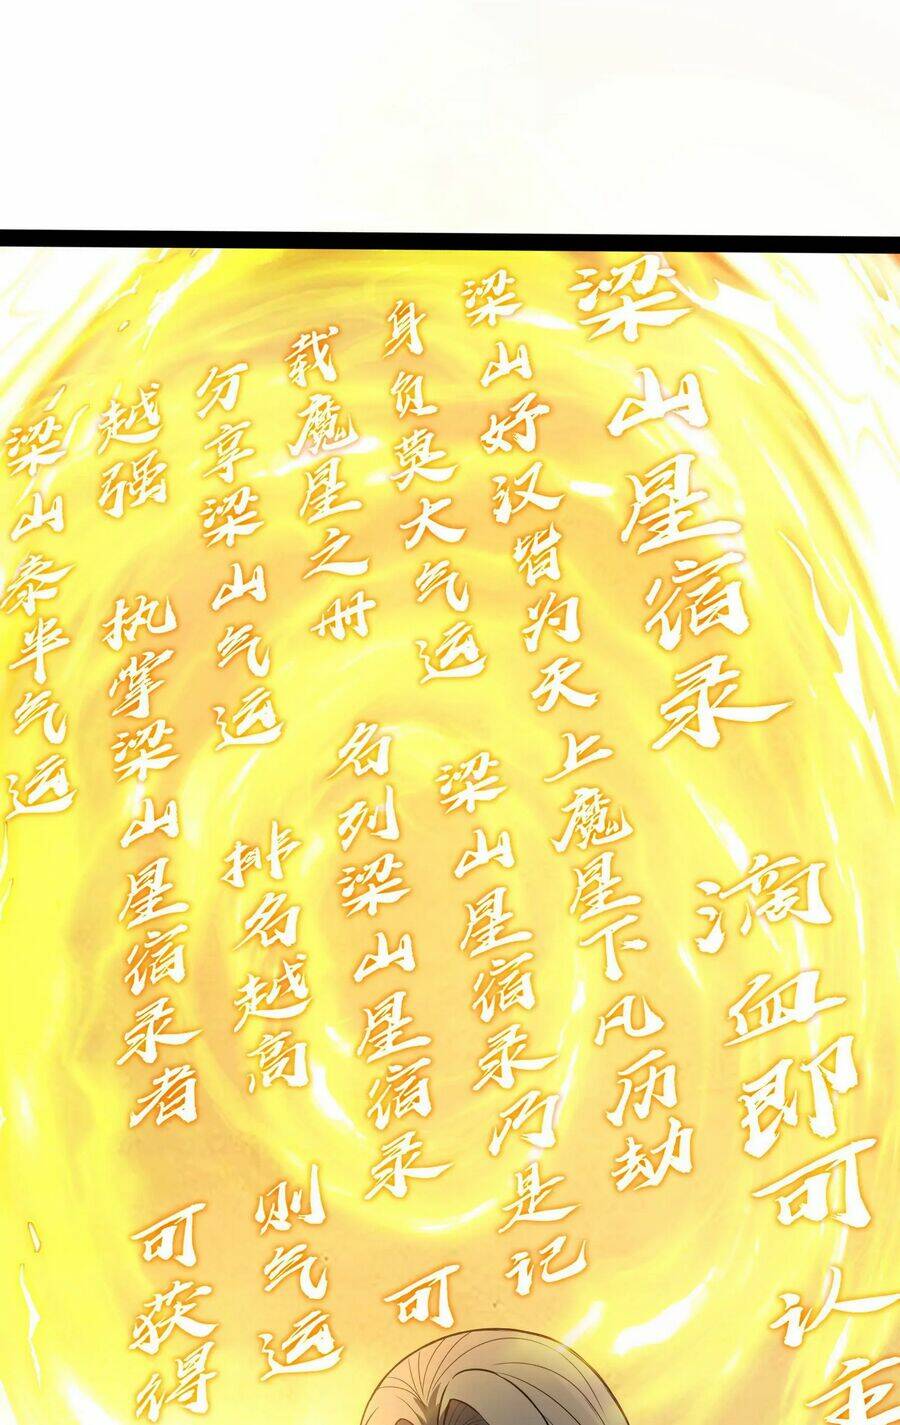 滴血即可认主
梁山星宿录
梁山好汉皆为天上魔星下凡历劫
身负莫大气运 梁山星宿录乃是记
载魔星之册 名列梁山星宿录 可
分享梁山气运 排名越高 则气运
越强 执掌梁山星宿录者 可获得
梁山泰半气运